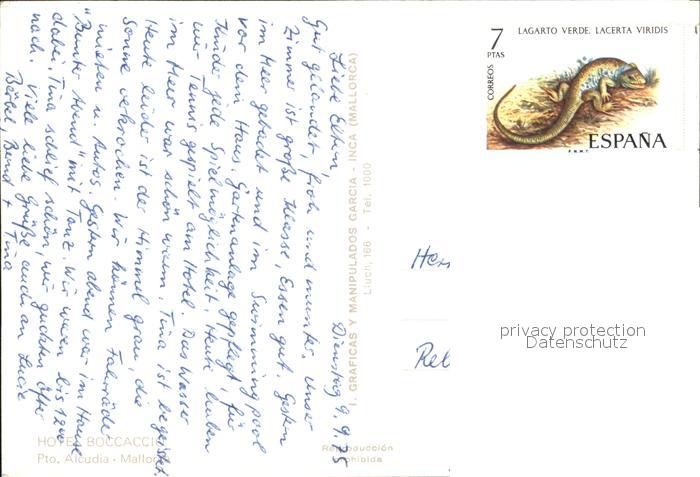 Dienstag 9.9.75
Liebe Eltern,
Gut gelandet, froh und munter. Unser
Zimmer ist große Messe, Essen gut. Gestern
im Meer gebadet und im Swimmingpool
vor dem Haus. Gartenanlage gepflegt, für
Kinder jede Spielmöglichkeit. Heute haben
wir Tennis gespielt am Hotel. Das Wasser
im Meer war schön warm, Tina ist begeistert.
Heute leider ist der Himmel grau, die
Sonne verkrochen. Wir können Fahrräder
mieten u. Autos. Gestern abend war im Hause
"Bunter Abend" mit Tanz. Wir waren bis 12 00
dabei, Tina schlief schön, wir guckten öfter
nach. Viele liebe Grüße auch an Lucie
Bärbel, Bernd + Tina
I. GRAFICAS Y MANIPULADOS GARCIA - INCA (MALLORCA)
Lluch, 166 - Tel. 1000
HOTEL BOCCACCIO
Pto. Alcudia - Mallorca
Reproducción
prohibida
7
PTAS
LAGARTO VERDE. LACERTA VIRIDIS
CORREOS
ESPAÑA
F.N.M.T.
privacy protection
Datenschutz